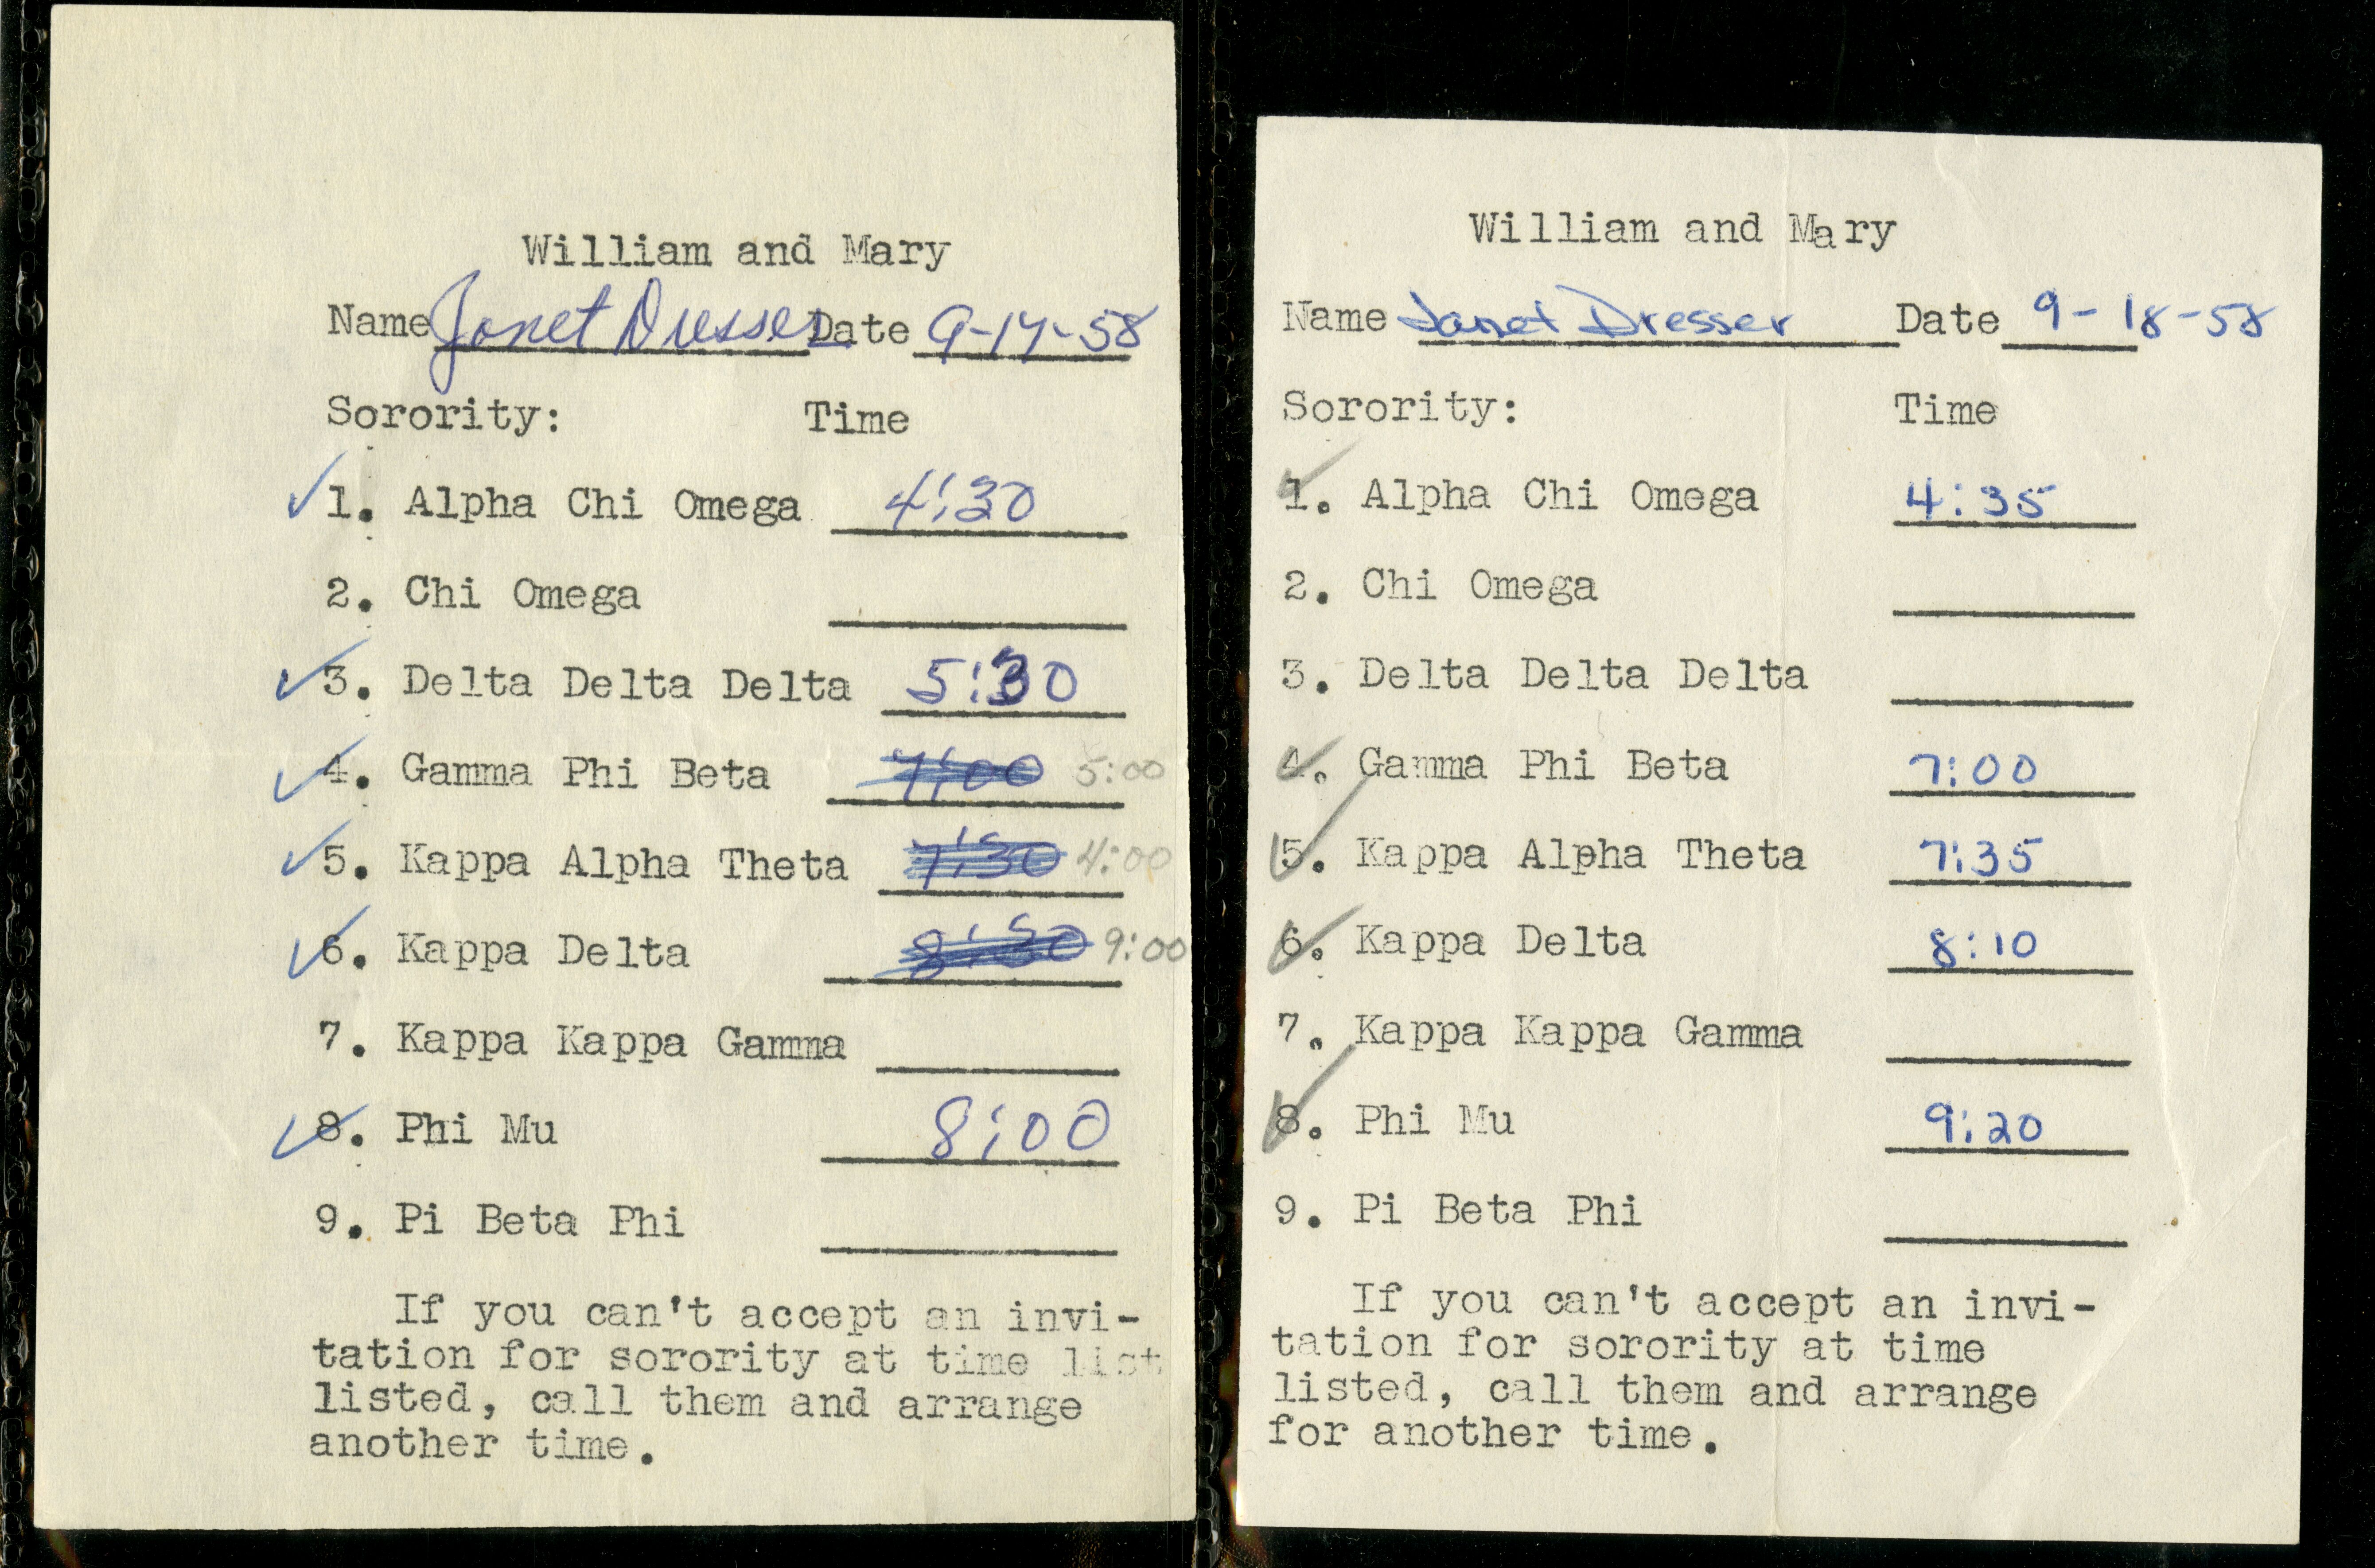 William and Mary
Name Janet Dresser Date 9-17-58
Sorority: Time
✓ 1. Alpha Chi Omega 4:30
2. Chi Omega
✓ 3. Delta Delta Delta 5:30
✓ 4. Gamma Phi Beta 7:00 5:00
✓ 5. Kappa Alpha Theta 7:30 4:00
✓ 6. Kappa Delta 8:30 9:00
7. Kappa Kappa Gamma
✓ 8. Phi Mu 8:00
9. Pi Beta Phi
If you can't accept an invi-
tation for sorority at time list
listed, call them and arrange
another time.
William and Mary
Name Janet Dresser Date 9-18-58
Sorority: Time
✓ 1. Alpha Chi Omega 4:35
2. Chi Omega
3. Delta Delta Delta
✓ 4. Gamma Phi Beta 7:00
✓ 5. Kappa Alpha Theta 7:35
✓ 6. Kappa Delta 8:10
7. Kappa Kappa Gamma
✓ 8. Phi Mu 9:20
9. Pi Beta Phi
If you can't accept an invi-
tation for sorority at time
listed, call them and arrange
for another time.